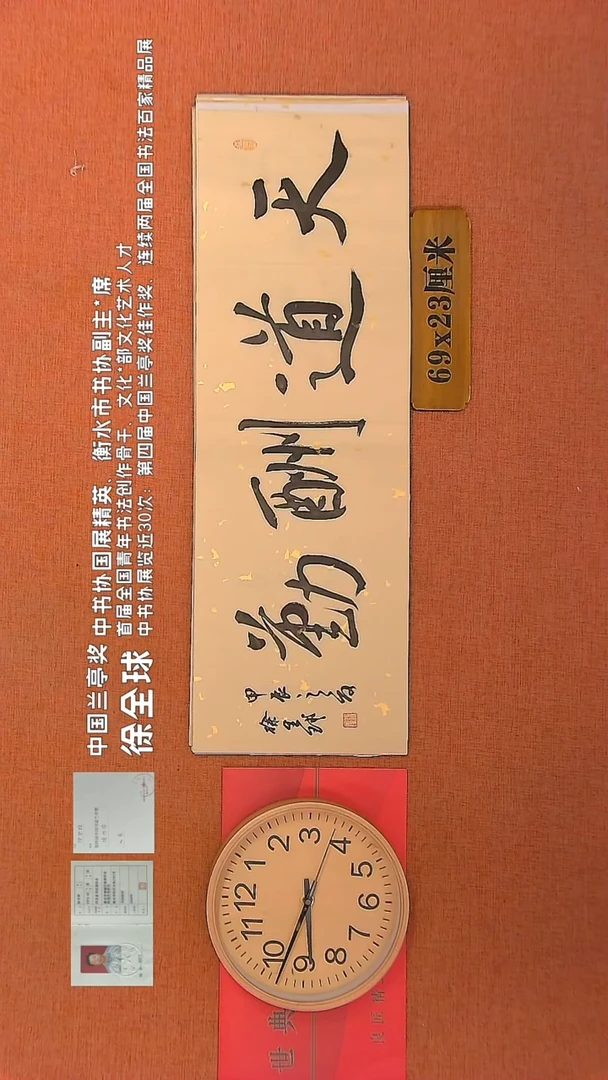 中国兰亭奖 中书协国展精英、衡水市书协副主*席
徐全球
首届全国青年书法创作骨干、文化*部文化艺术人才
中书协展览近30次：第四届中国兰亭奖佳作奖、连续两届全国书法百家精品展
天道酬勤
甲辰
徐全球
69x23厘米
12
1
2
3
4
5
6
7
8
9
10
11
世典
良匠精